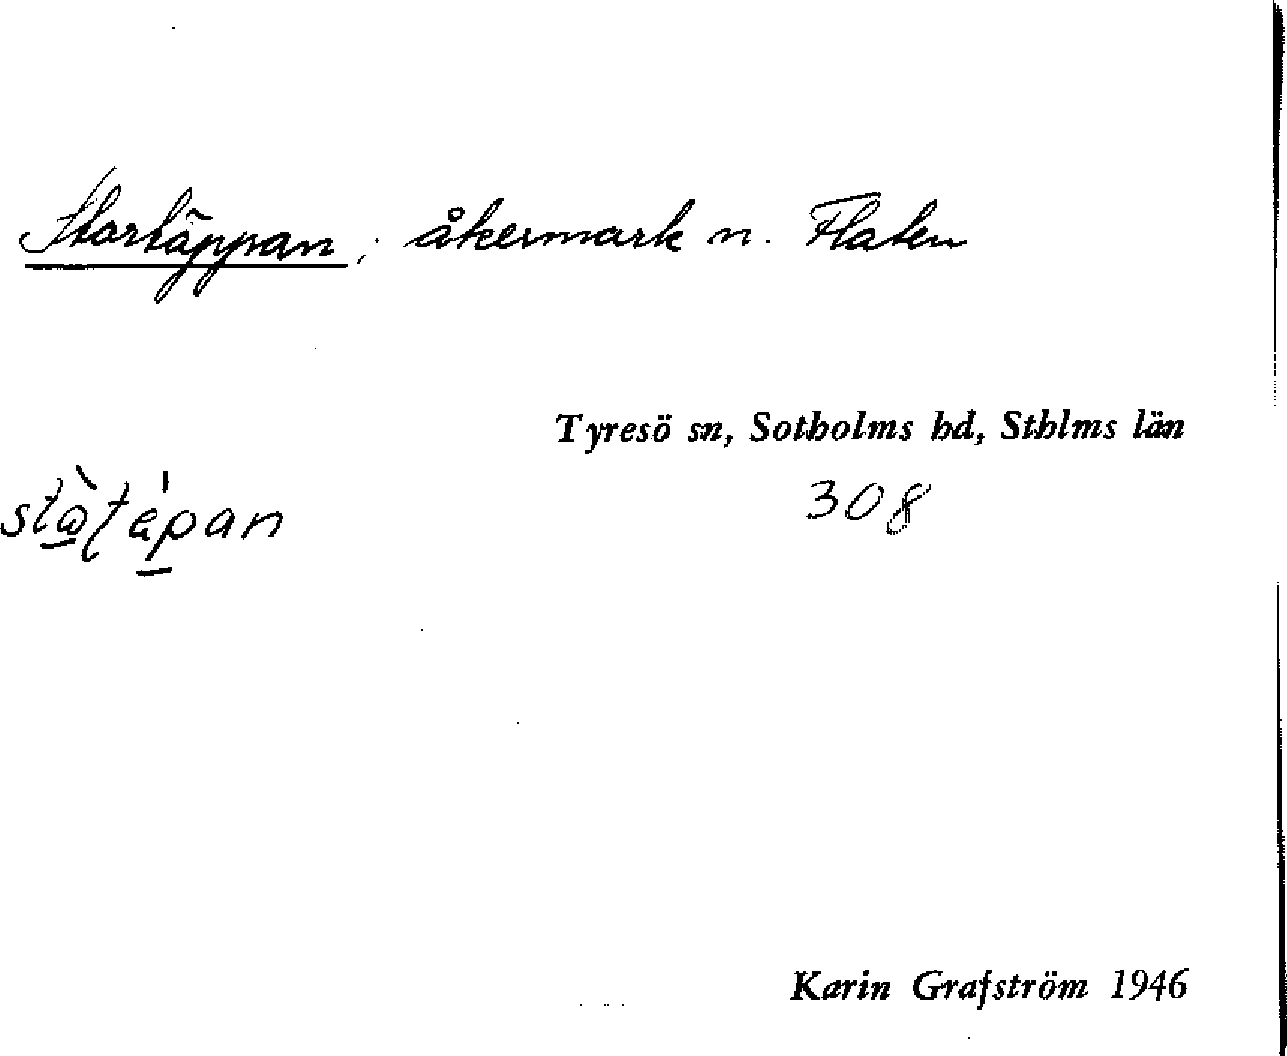 Stortäppan; åkermark n. Flaten
Tyresö sn, Sotholms hd, Sthlms län
308
Karin Grafström 1946